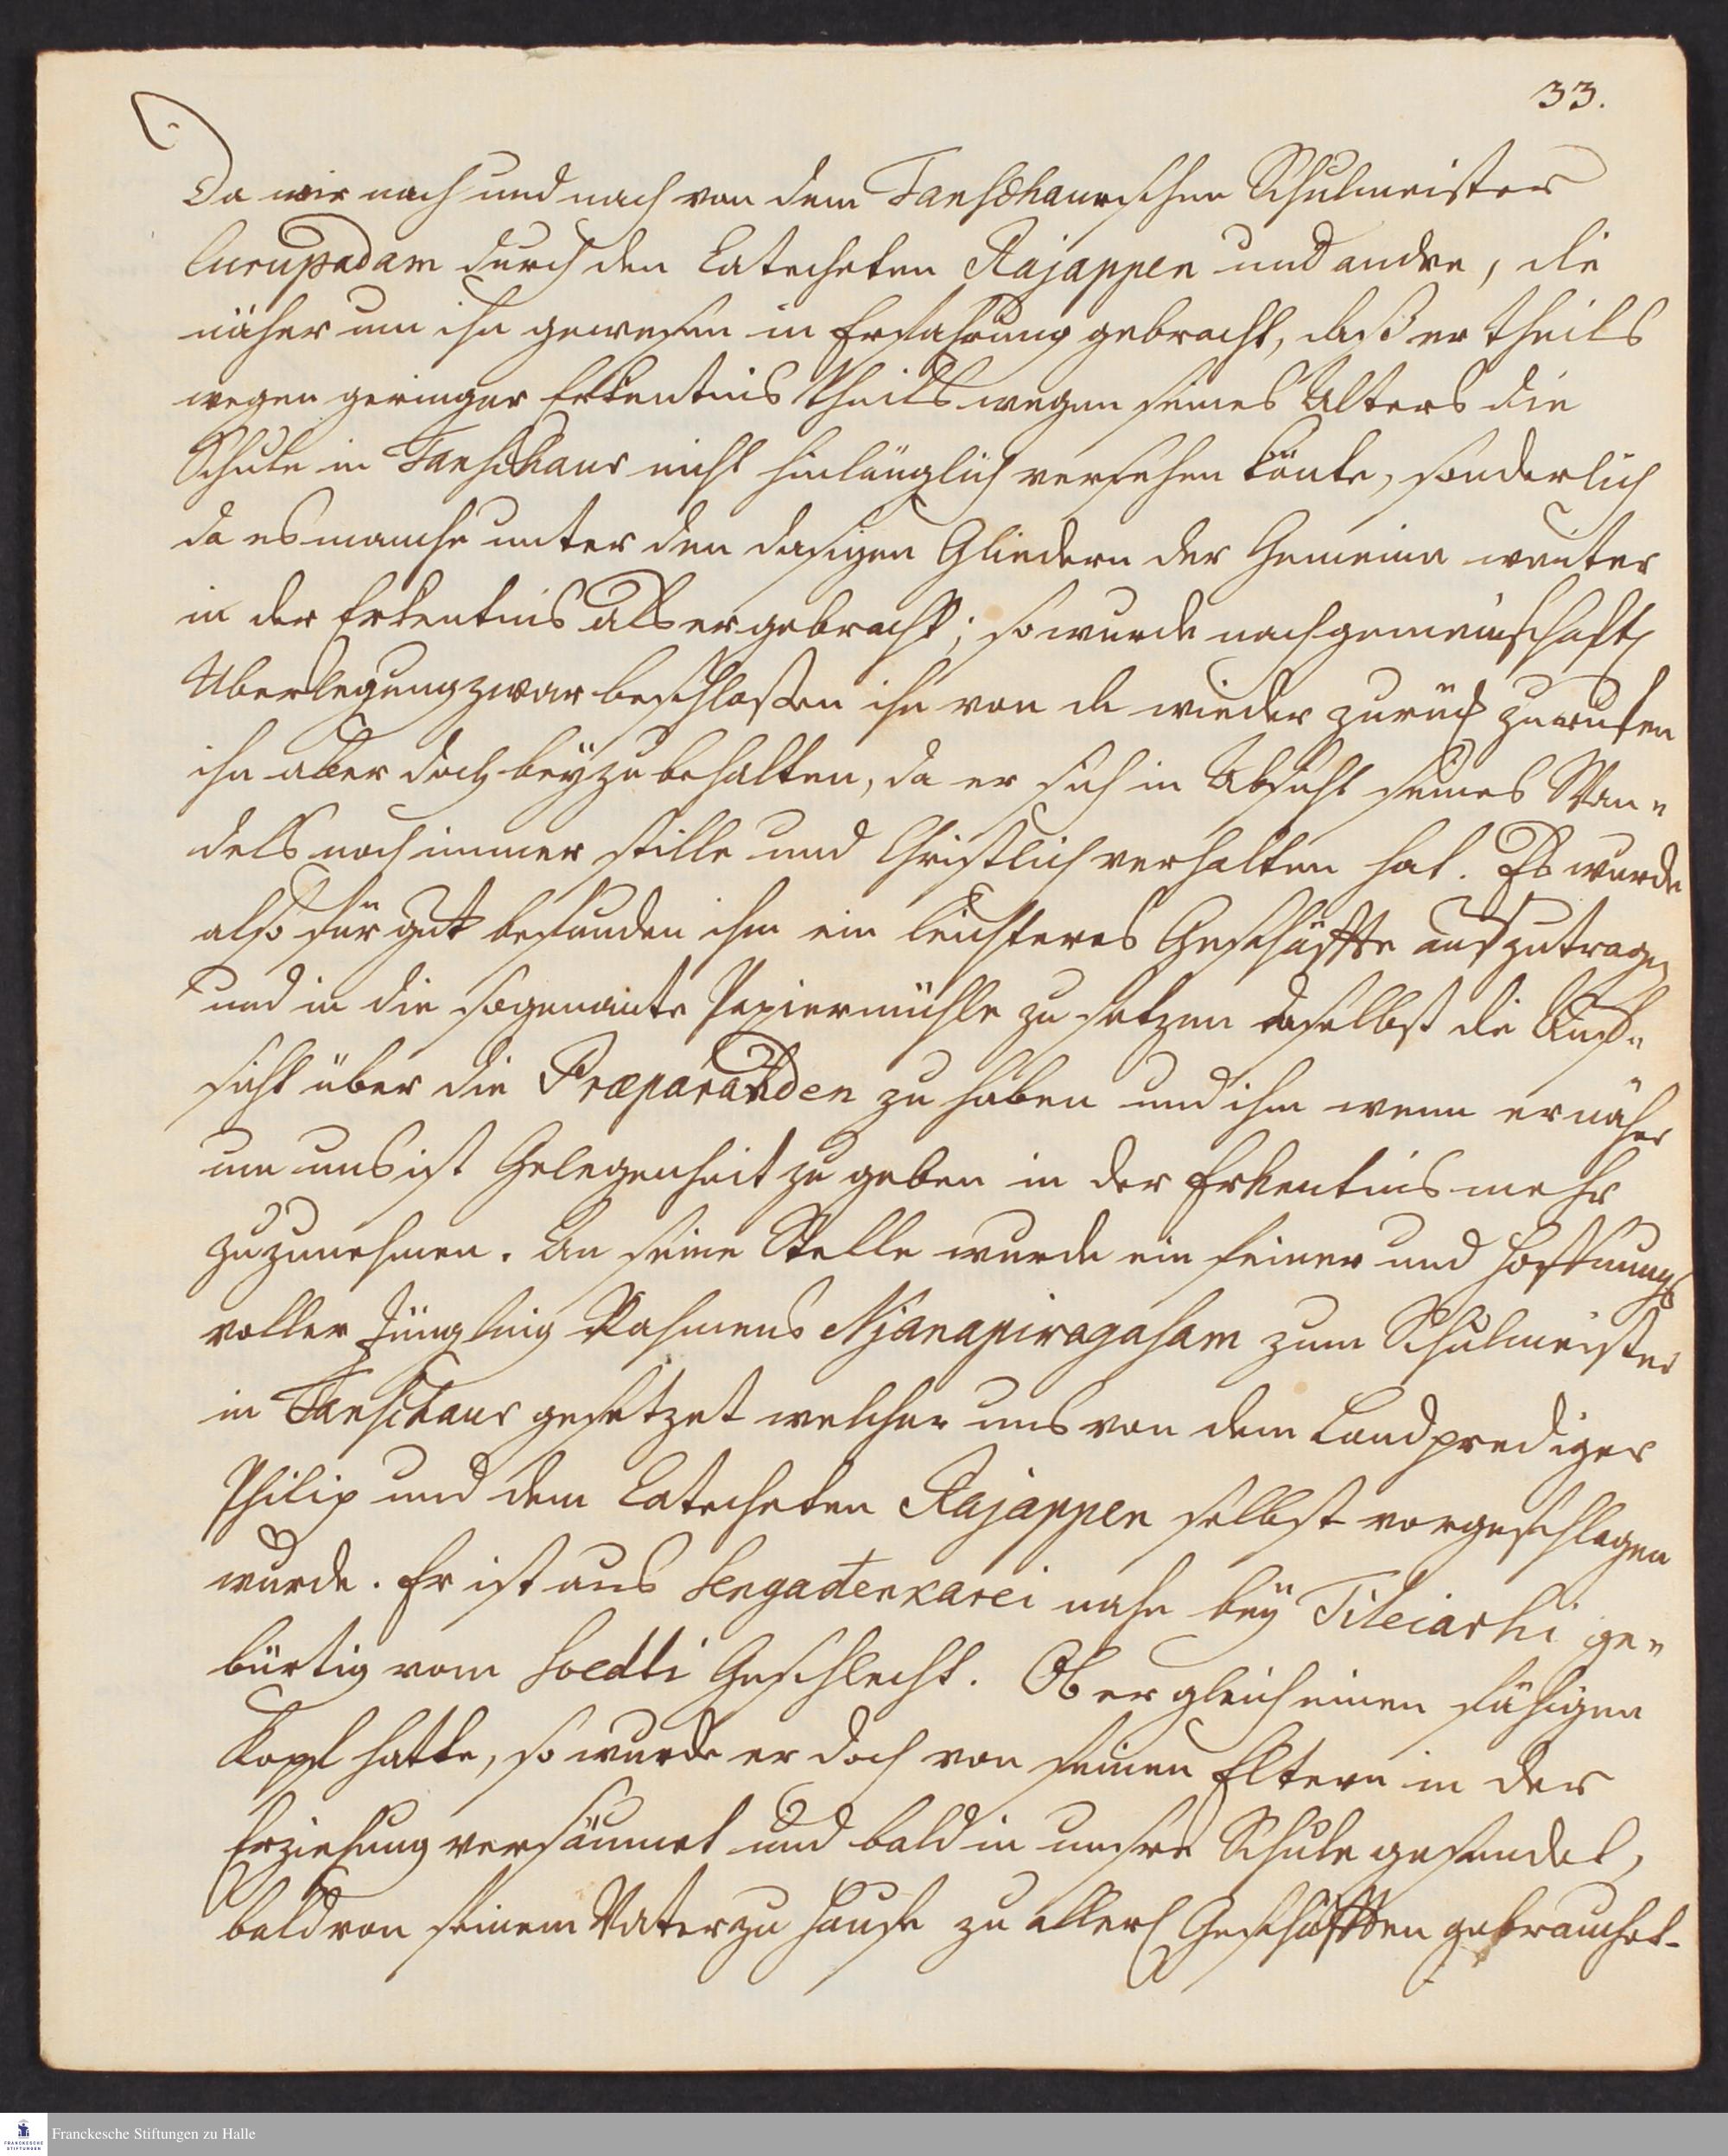 33.
Da wir nach und nach von dem Tanschaurischen Schulmeister
Curupadam durch den Catecheten Rajappen und andre, die
näher um ihn gewesen in Erfahrung gebracht, daß er theils
wegen geringer Erkentnis theils wegen seines Alters die
Schule in Tanschaur nicht hinlänglich versehen könte, sonderlich
da es manche unter den dasigen Gliedern der Gemeine weiter
in der Erkentnis als er gebracht; so wurde nach gemeinschaftl
Uberlegung zwar beschloßen ihn von da wieder zurück zu rufen
ihn aber doch beÿzubehalten, da er sich in Absicht seines Wan„
dels noch immer stille und Christlich verhalten hat. Es wurde
also für gut befunden ihm ein leichteres Geschäffte aufzutragen
und in die sogenante Papiermühle zu setzen daselbst die Auf„
sicht über die Præparanden zu haben und ihm wenn er näher
um uns ist Gelegenheit zu geben in der Erkentnis mehr
zuzunehmen. An seine Stelle wurde ein feiner und hoffnungs
voller Jüngling Nahmens Njanapiragasam zum Schulmeister
in Tanschaur gesetzet welcher uns von dem Landprediger
Philip und dem Catecheten Rajappen selbst vorgeschlagen
wurde. Er ist aus Sengadenkarei nahe beÿ Tileiarhi ge„
bürtig vom Soedti Geschlecht. Ob er gleich einen fähigen
Kopf hatte, so wurde er doch von seinen Eltern in der
Erziehung versäumet und bald in unsre Schule gesendet,
bald von seinem Vater zu Hause zu allerl Geschäfften gebrauchet
Franckesche Stiftungen zu Halle
FRANCKESCHE
STIFTUNGEN